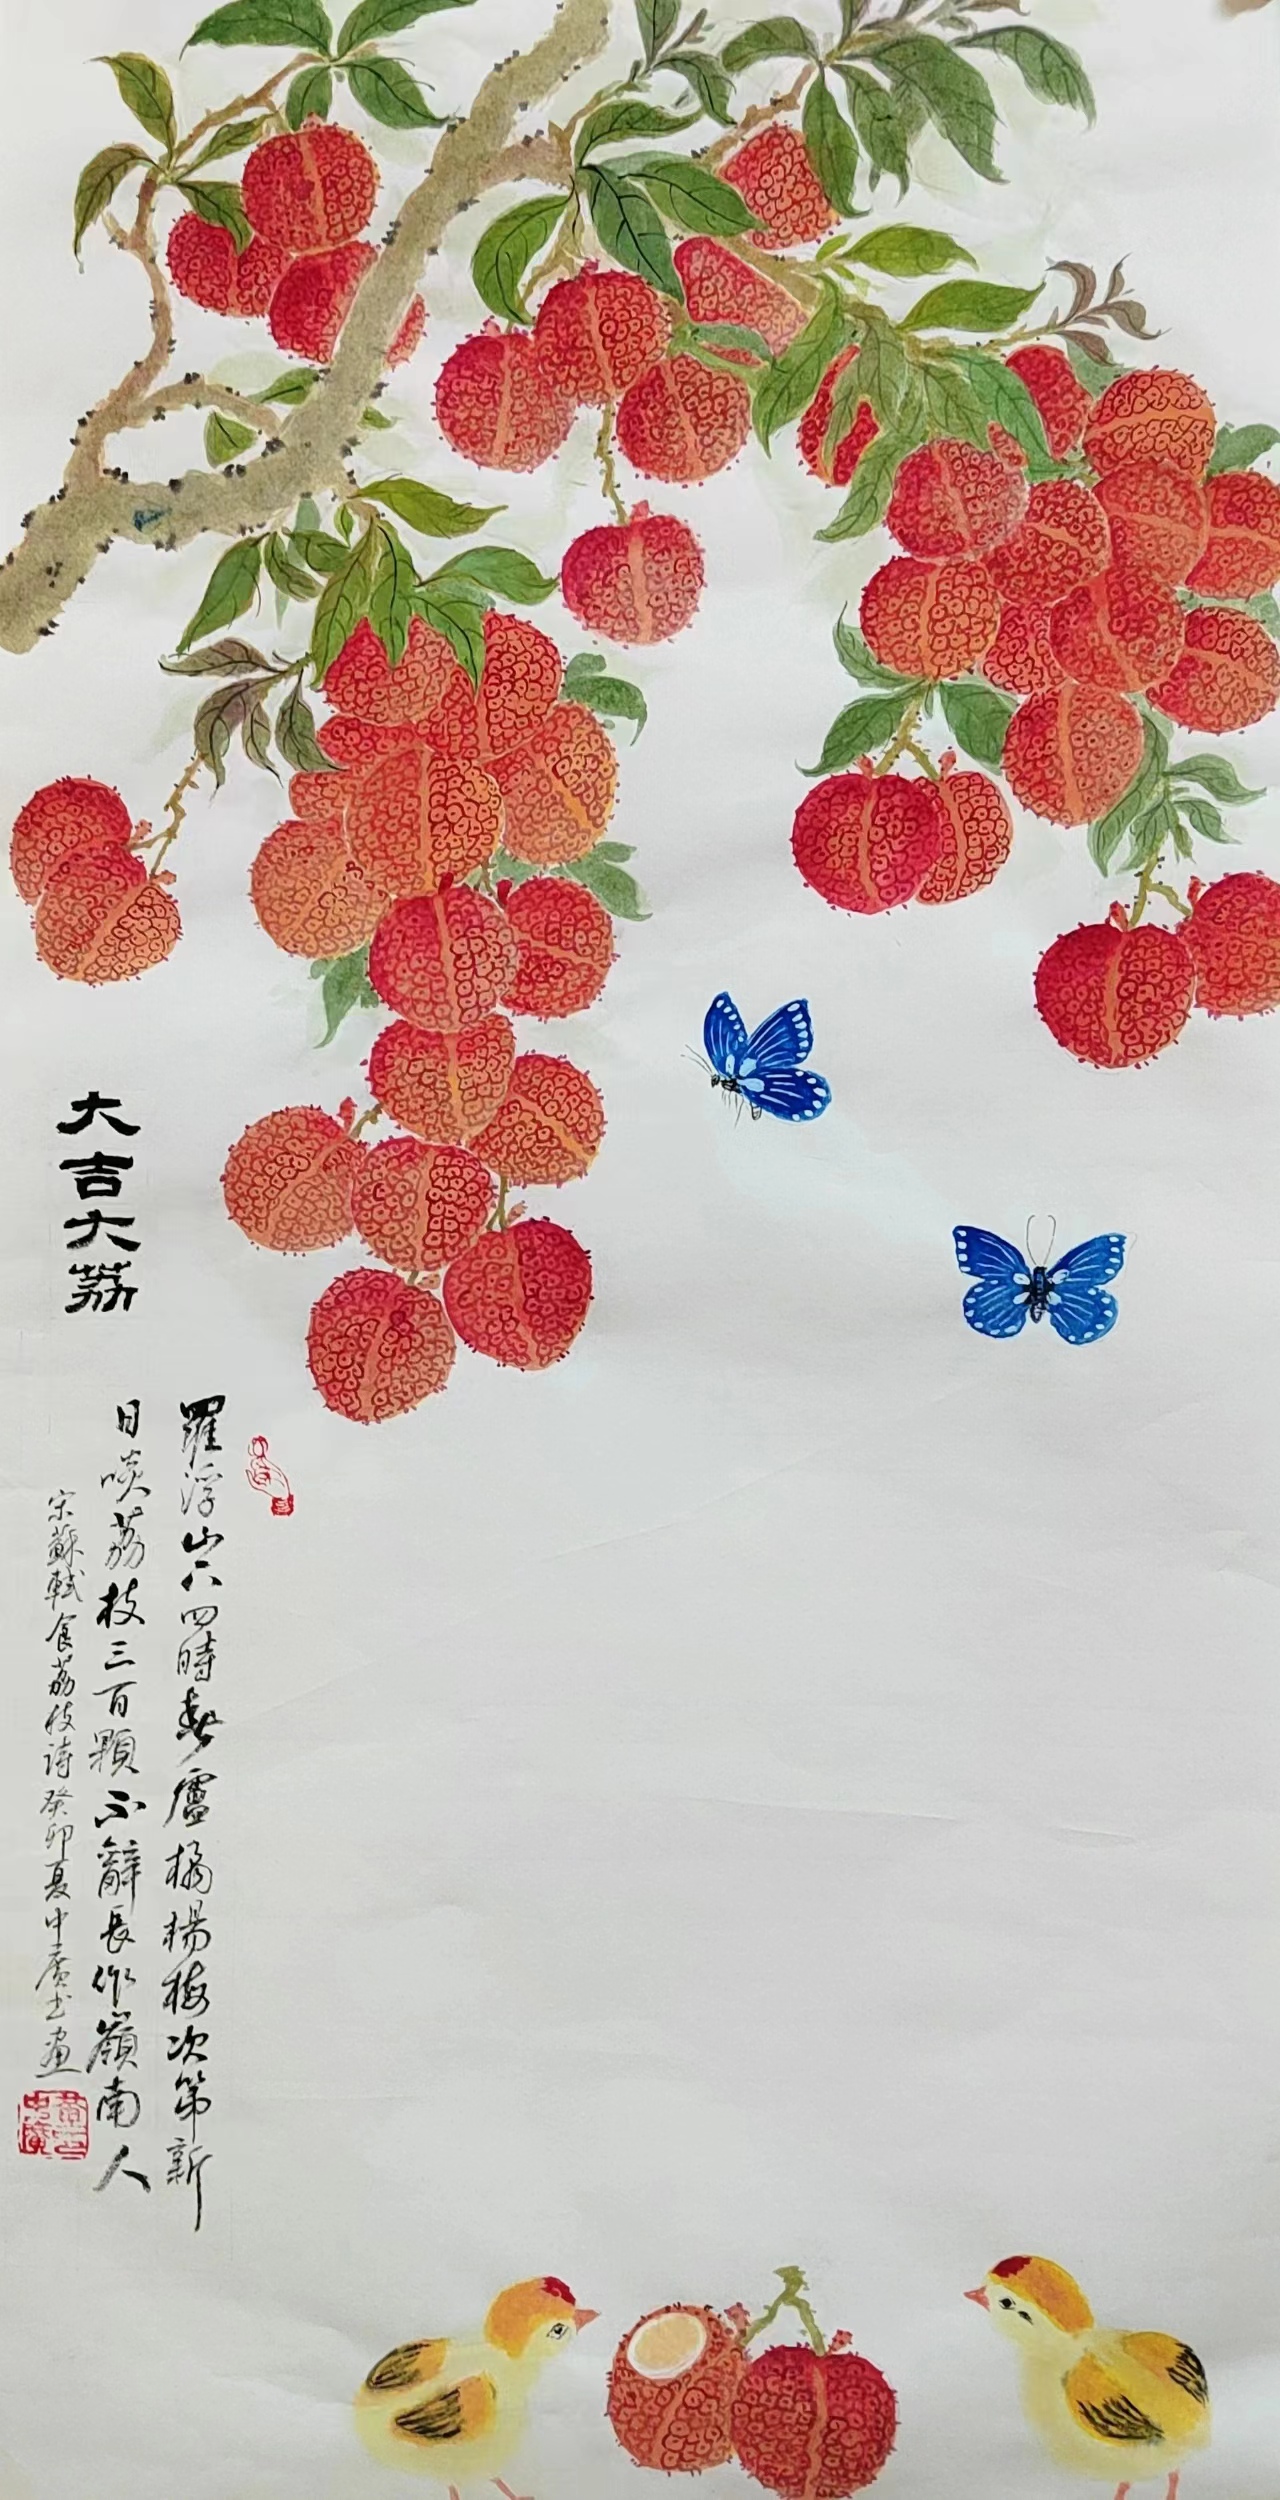 大吉大荔
羅浮山下四時春盧橘楊梅次第新
日啖荔枝三百顆不辭長作嶺南人
宋蘇軾食荔枝诗癸卯夏中廣书画